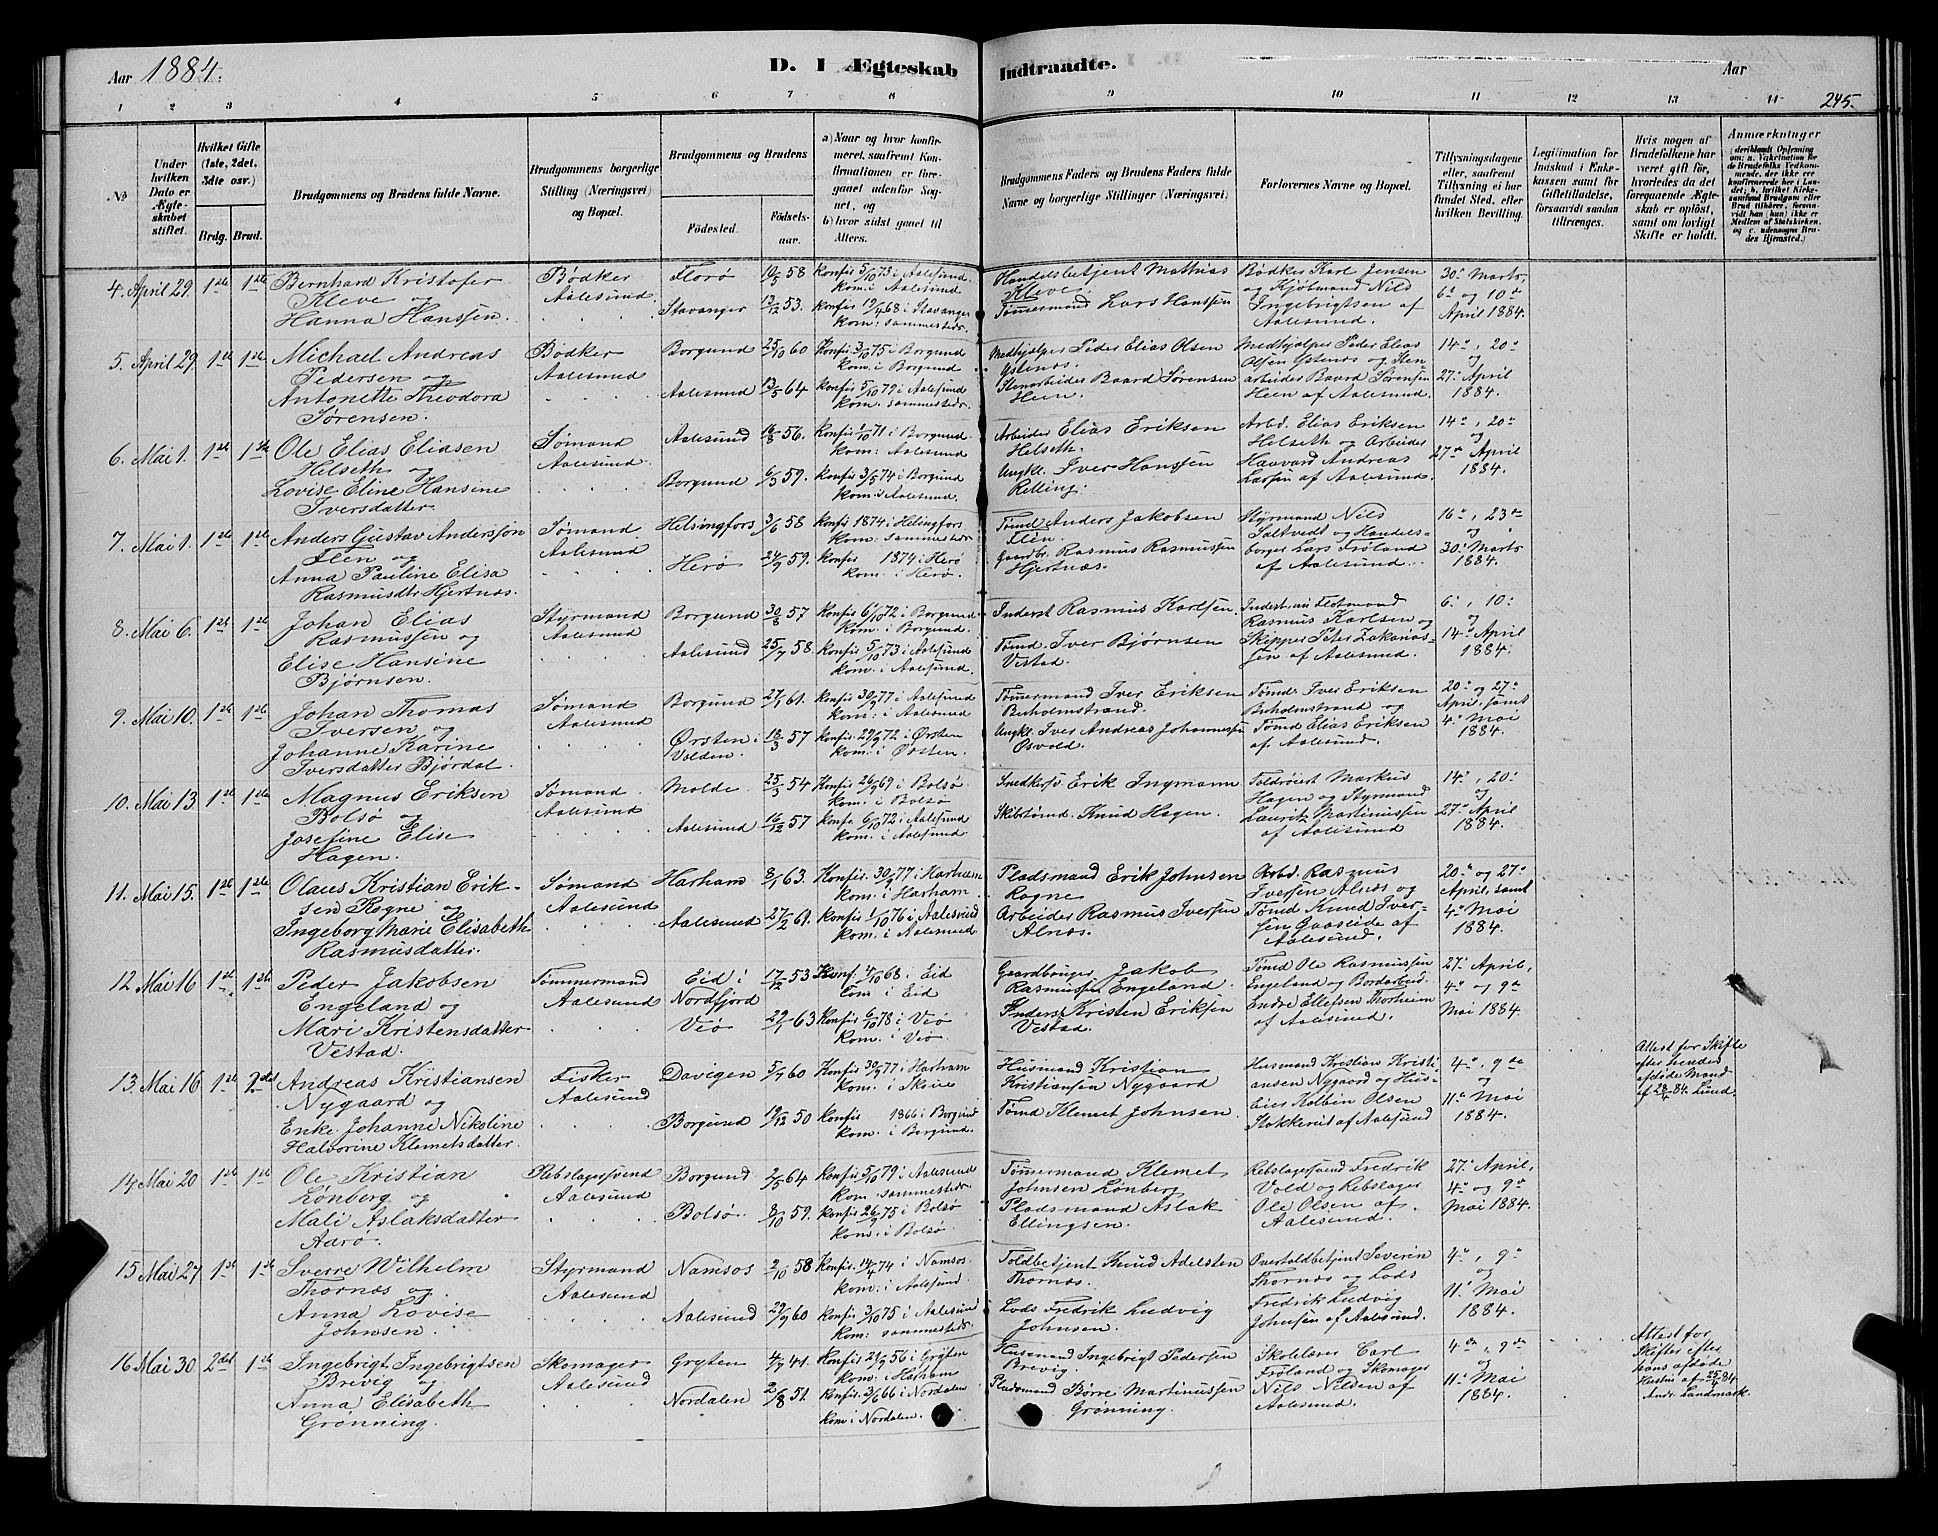 Aar 1884.
D. I Ægteskab Indtraadte.
Aar
245.
1 2 3 4 5 6 7 8 9 10 11 12 13 14
No
Under hvilken Dato er Ægteskabet stiftet.
Hvilket Gifte (1ste, 2det, 3die osv.)
Brdg. Brud.
Brudgommens og Brudens fulde Navne.
Brudgommens borgerlige Stilling (Næringsvei) og Bopæl.
Brudgommens og Brudens
Fødested.
Fødselsaar.
a) Naar og hvor konfirmeret, saafremt Konfirmationen er foregaaet udenfor Sognet, og
b) hvor sidst gaaet til Alters.
Brudgommens Faders og Brudens Faders fulde Navne og borgerlige Stillinger (Næringsvei)
Forlovernes Navne og Bopæl.
Tillysningsdagene eller, saafremt Tillysning ei har fundet Sted, efter hvilken Bevilling.
Legitimation for Indskud i Enkekassen samt for Giftetilladelse, forsaavidt saadan tiltrænges.
Hvis nogen af Brudefolkene har været gift før, hvorledes da det foregaaende Ægteskab er opløst, samt om lovligt Skifte er holdt.
Anmærkninger
4. April 29. 1ste 1ste Bernhard Kristofer Kleve og Hanna Hanssen.
Bødker Aalesund.
Florø 10/5 58 Konfir 5/10 73 i Aalesund. Kom. i Aalesund
Stavanger 13/12 53. Konfir 19/4 68 i Stavanger Kom. sammesteds.
Handelsbetjent Mathias Kleve.
Tømermand Lars Hanssen
Bødker Karl Jensen og Kjøbmand Nils Ingebrigtsen af Aalesund.
30te Marts, 6te og 10de April 1884.
5. April 29. 1ste 1ste Michael Andreas Pedersen og Antonette Theodora Sørensen.
Bødker Aalesund
Borgund 25/10 60 Konfir 3/10 75 i Borgund Kom. i Borgund
Aalesund 13/5 64 Konfir 5/10 79 i Aalesund Kom. sammesteds.
Medhjælper Peder Elias Olsen Ystenæs.
Stenarbeider Baard Sørensen Heen.
Medhjælper Peder Elias Olsen Ystenæs og Stenarbeider Baard Sørensen Heen af Aalesund.
14de, 20de og 27de April 1884.
6. Mai 1. 1ste 1ste Ole Elias Eliasen Helseth og Lovise Eline Hansine Iversdatter.
Sømand Aalesund.
Aalesund 16/8 56. Konfir 1/10 71 i Borgund. Kom. Aalesund
Borgund 6/3 59. Konfir 3/5 74 i Borgund Kom. i Aalesund.
Arbeider Elias Eriksen Helseth.
Ungkl. Iver Hanssen Relling.
Arbd. Elias Eriksen Helseth og Arbeider Haavard Andreas Larsen af Aalesund.
14de, 20de og 27de April 1884.
7. Mai 1. 1ste 1ste Anders Gustav Andersson Flen og Anna Pauline Elisa Rasmusdtr Hjertnæs.
Sømand. Aalesund
Helsingfors 3/6 58 Konfir 1874 i Helsingfors Kom. sammesteds
Herø 24/9 59. Konfir 1874 i Herø Kom. i Herø.
Tømd Anders Jakobsen Flen
Gaardbr. Rasmus Rasmussen Hjertnæs.
Styrmand Nils Saltvedt og Handelsborger Lars Frøland af Aalesund.
16de, 23de og 30te Marts 1884.
8. Mai 6. 1ste 1ste Johan Elias Rasmussen og Elise Hansine Bjørnsen.
Styrmand Aalesund
Borgund 30/8 57 Konfir 6/10 72 i Borgund. Kom. i Borgund.
Aalesund 25/7 58. Konfir 5/10 73 i Aalesund Kom. i Aalesund.
Inderst Rasmus Karlsen.
Tømd. Iver Bjørnsen Vestad.
Rasmus Karlsen og Skipper Peter Zakariassen af Aalesund.
6te, 10de og 14de April 1884.
9. Mai 10. 1ste 1ste Johan Thomas Iversen og Johanne Karine Iversdatter Bjørdal.
Sømand Aalesund
Borgund 27/1 61. Konfir 30/9 77 i Aalesund Kom. i Aalesund
Ørsten i Volden 18/3 57 Konfir. 29/9 72 i Ørsten Kom. i Ørsten.
Tømermand Iver Eriksen Buholmstrand.
Ungkl. Iver Andreas Johannessen Osvold.
Tømd. Iver Eriksen Buholmstrand og Tømd Elias Eriksen af Aalesund.
20de og 27de April, samt 4de Mai 1884.
10. Mai 13. 1ste 1ste Magnus Eriksen Bolsø og Josefine Elise Hagen.
Sømand. Aalesund
Molde 25/3 54 Konfir 26/9 69 i Bolsø Kom. i Bolsø
Aalesund 16/12 57 Konfir 6/10 72 i Aalesund Kom. i Aalesund.
Snedkersv. Erik Ingmann
Skibstømd. Knud Hagen.
Toldroiert Markus Hagen og Styrmand Lauritz Martinussen af Aalesund
14de, 20de og 27de April 1884.
11. Mai 15. 1ste 1ste Olaus Kristian Eriksen Rogne og Ingeborg Marie Elisabeth Rasmusdatter.
Sømand Aalesund
Harham 8/1 63. Konfir. 30/9 77 i Harham Kom. i Harham
Aalesund 27/2 61. Konfir 1/10 76 i Aalesund Kom. i Aalesund.
Pladsmand Erik Johnsen Rogne
Arbeider Rasmus Iversen Alnæs.
Arbd. Rasmus Iversen Alnæs og Tømd Knud Iversen Gaaseide af Aalesund.
20de og 27de April, samt 4de Mai 1884.
12 Mai 16 1ste 1ste Peder Jakobsen Engeland og Mari Kristensdatter Vestad.
Tømmermand Aalesund
Eid i Nordfjord 17/12 53 Konf. 4/10 68 i Eid Kom i Eid
Veø 29/1 63 Konfir 6/10 78 i Veø Kom. i Veø.
Gaardbruger Jakob Rasmussen Engeland.
Inderst Kristen Eriksen Vestad.
Tømd Ole Rasmussen Engeland og Bordarbeid. Endre Ellefsen Thorheim af Aalesund.
27de April, 4de og 9de Mai 1884.
13. Mai 16 1ste 2det Andreas Kristiansen Nygaard og Enke Johanne Nikoline Halvorine Klemetsdatter.
Fisker Aalesund
Davigen 5/7 60 Konfir 30/9 77 i Harham Kom. i Skeie
Borgund 19/12 50 Konfir 1866 i Borgund Kom. i Borgund.
Husmand Kristian Kristiansen Nygaard
Tømd Klemet Johnsen.
Husmand Kristian Kristiansen Nygaard og Huseier Kolbin Olsen Stokkereit af Aalesund
4de, 9de og 11te Mai 1884.
Attest for Skifte efter hendes afdøde Mand af 28/4 84. Lund.
14 Mai 20 1ste 1ste Ole Kristian Lønberg og Mali Aslaksdatter Aarø.
Rebslagersvend Aalesund
Borgund 2/5 64 Konfir 5/10 79 i Aalesund Kom. sammesteds.
Bolsø. 8/10 59. Konfir 26/9 75 i Bolsø Kom. i Bolsø
Tømermand Klemet Johnsen Lønberg
Pladsmand Aslak Ellingsen.
Rebslagersvend Fredrik Vold og Rebslager Ole Olsen af Aalesund.
27de April, 4de og 9de Mai 1884.
15 Mai 27 1ste 1ste Sverre Wilhelm Thornæs og Anna Lovise Johnsen.
Styrmand Aalesund
Namsos 2/10 58 Konfir. 14/4 74 i Namsos. Kom. i Aalesund.
Aalesund 29/9 60 Konfir 3/10 75 i Aalesund Kom. sammesteds.
Toldbetjent Knud Adelsten Thornæs.
Lods Fredrik Ludvig Johnsen.
Overtoldbetjent Severin Thornæs og Lods Fredrik Ludvig Johnsen af Aalesund.
4de, 9de og 11te Mai 1884.
16 Mai 30 2det 1ste Ingebrigt Ingebrigtsen Brevig og Anna Elisabeth Grønning.
Skomager Aalesund
Gryten 4/9 41. Konfir 21/9 56 i Gryten Kom. i Harham
Nordalen 2/8 51. Konfir. 3/6 66 i Nordalen Kom i Nordalen.
Husmand Ingebrigt Pedersen Brevig.
Pladsmand Børre Martinussen Grønning.
Skolelærer Carl Frøland og Skomager Nils Nilsen af Aalesund.
4de, 9de og 11te Mai 1884.
Attest for Skifte efter hans afdøde Hustru af 25/4 84. Andr. Landmark.